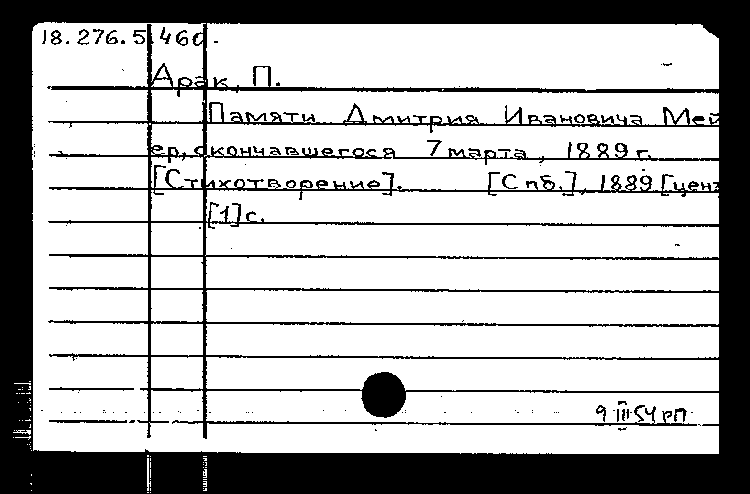 18.276.5.460.
Арак, П.
Памяти Дмитрия Ивановича Мей
ер, скончавшегося 7 марта, 1889 г.
[Стихотворение]. [Спб.], 1889 [ценз
[1] с.
9 III 54 РП